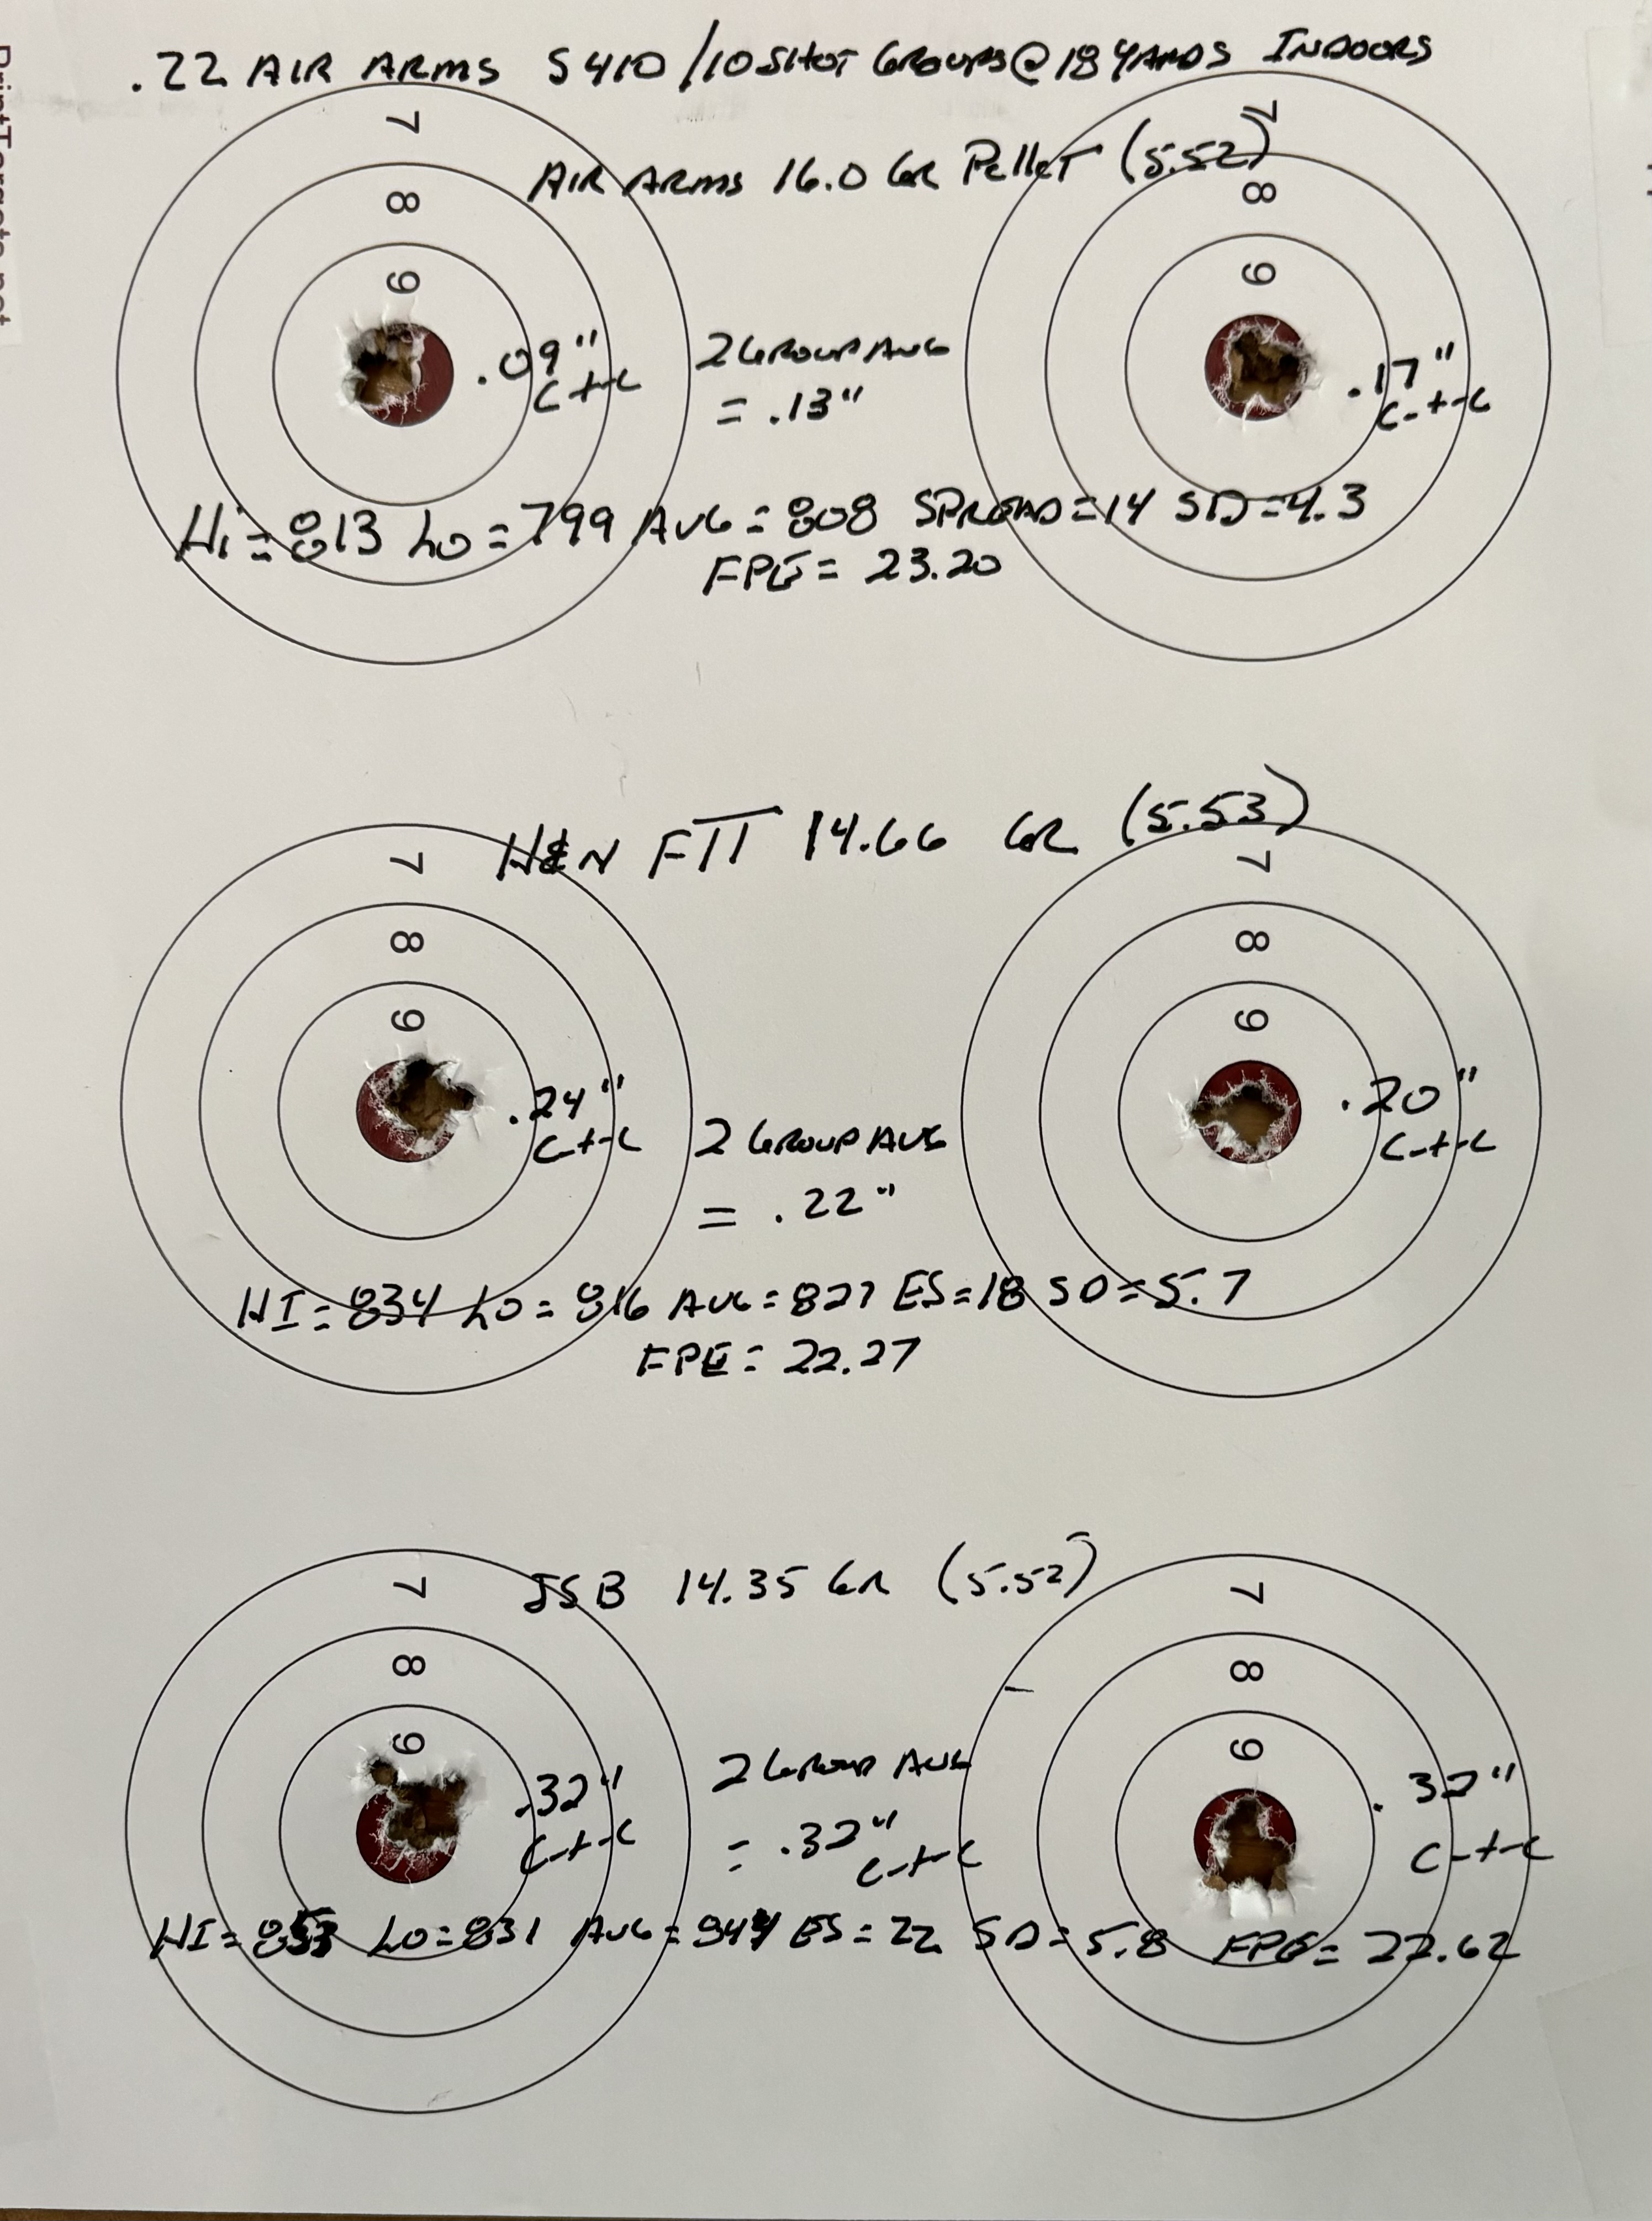 .22 AIR ARMS S410 / 10 SHOT GROUPS @ 18 YARDS INDOORS
7
7
AIR ARMS 16.0 GR Pellet (5.52)
8
8
9
9
.09" C-t-C
2 GROUP AVG
= .13"
.17" C-t-C
Hi = 813 Lo = 799 AVG = 808 SPREAD = 14 SD = 4.3
FPE = 23.20
H&N FTT 14.66 GR (5.53)
7
7
8
8
9
9
.24" C-t-C
2 GROUP AVG
= .22"
.20" C-t-C
HI = 834 LO = 816 AVG = 827 ES = 18 SD = 5.7
FPE = 22.27
JSB 14.35 GR (5.52)
7
7
8
8
9
9
.32" C-t-C
2 GROUP AVG
= .32" C-t-C
.32" C-t-C
HI = 853 LO = 831 AVG = 844 ES = 22 SD = 5.8 FPE = 22.62
PrintTargets.net